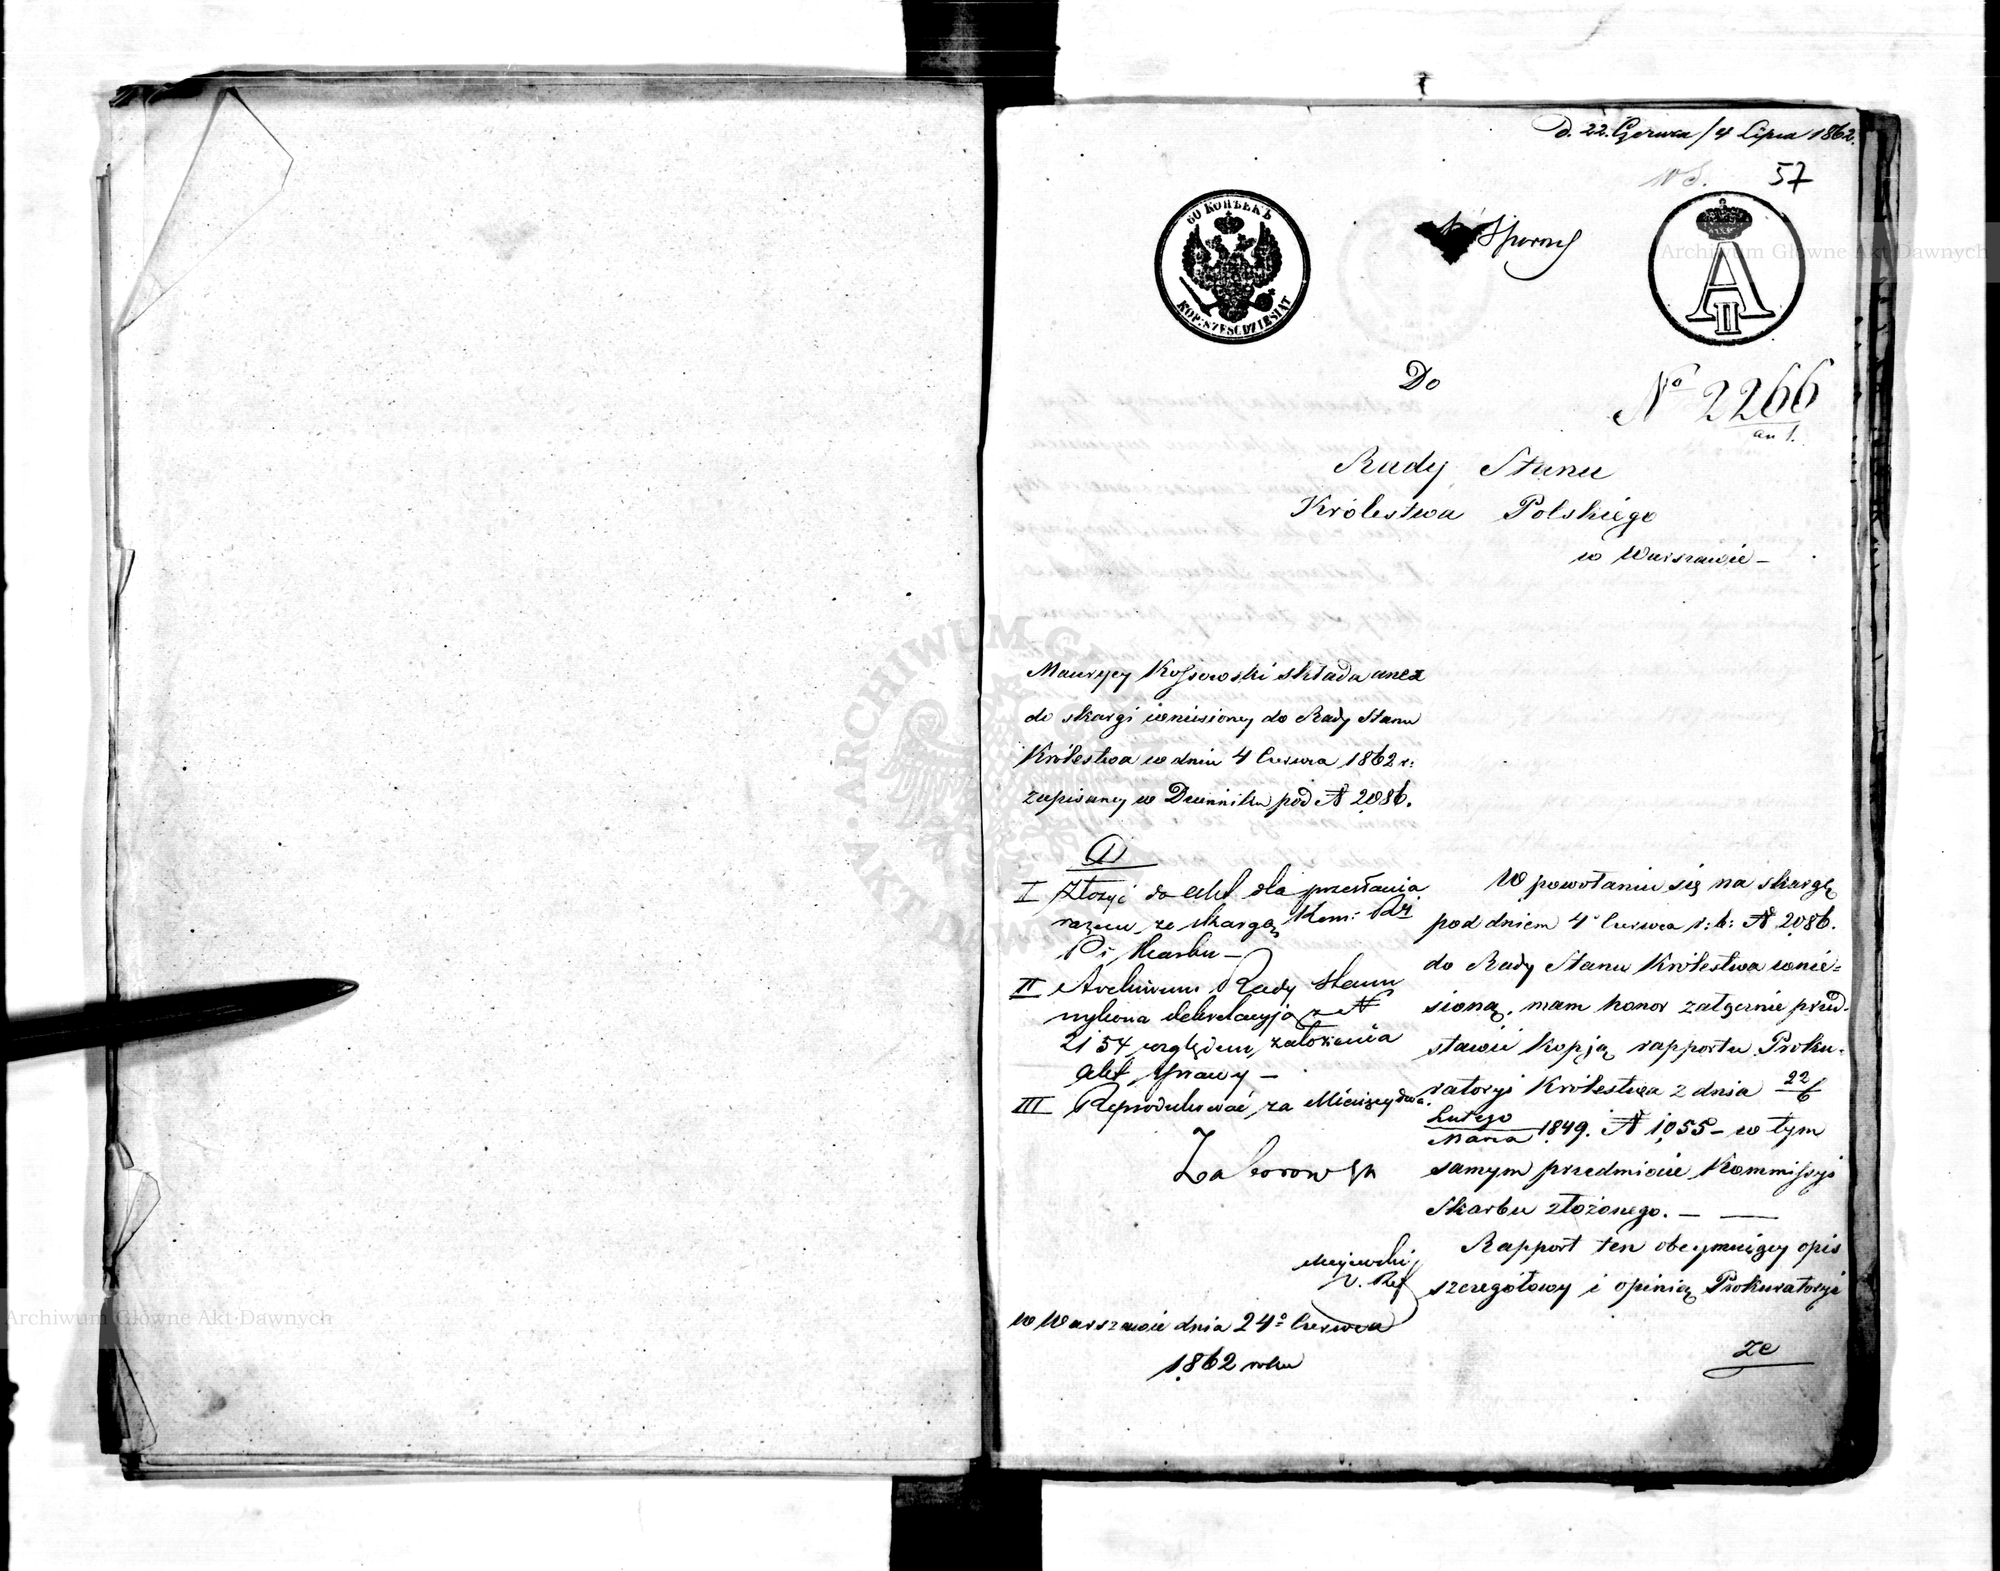 D. 22. Czerwca/4 Lipca 1862.
57
60 КОПѢЕКЪ
KOP: SZEŚĆDZIESIĄT
Sporny
A II
Do
No 2266
an 1.
Rady Stanu
Królestwa Polskiego
w Warszawie –
Maurycy Kossowski składa anex
do skargi wniesioney do Rady Stanu
Królestwa w dniu 4 Czerwca 1862 r:
zapisaney w Dzienniku pod N 2086.
I Złożyć do Akt dla przesłania
razem ze skargą Kom: Rz
P i Skarbu –
II Archiwum Rady Stanu
wykona dekretacyją z N
2154 względem założenia
Akt sprawy –
III Reprodukować za Miesięcy dwa.
Zaborowski
Majewski
W Warszawie dnia 24o Czerwca
1862 roku
W powołaniu się na skargę
pod dniem 4 Czerwca r: b: N 2086.
do Rady Stanu Królestwa wnie=
sioną, mam honor załącznie przed=
stawić kopją rapportu Proku=
ratoryi Królestwa z dnia 22/6
Lutego/Marca 1849. N 1055 – w tym
samym przedmiocie Kommissyi
Skarbu złożonego. –
Rapport ten obeymuiący opis
szczegółowy i opinią Prokuratoryi
ze
ARCHIWUM GŁ
AKT DAWN
Archiwum Główne Akt Dawnych
Archiwum Główne Akt Dawnych